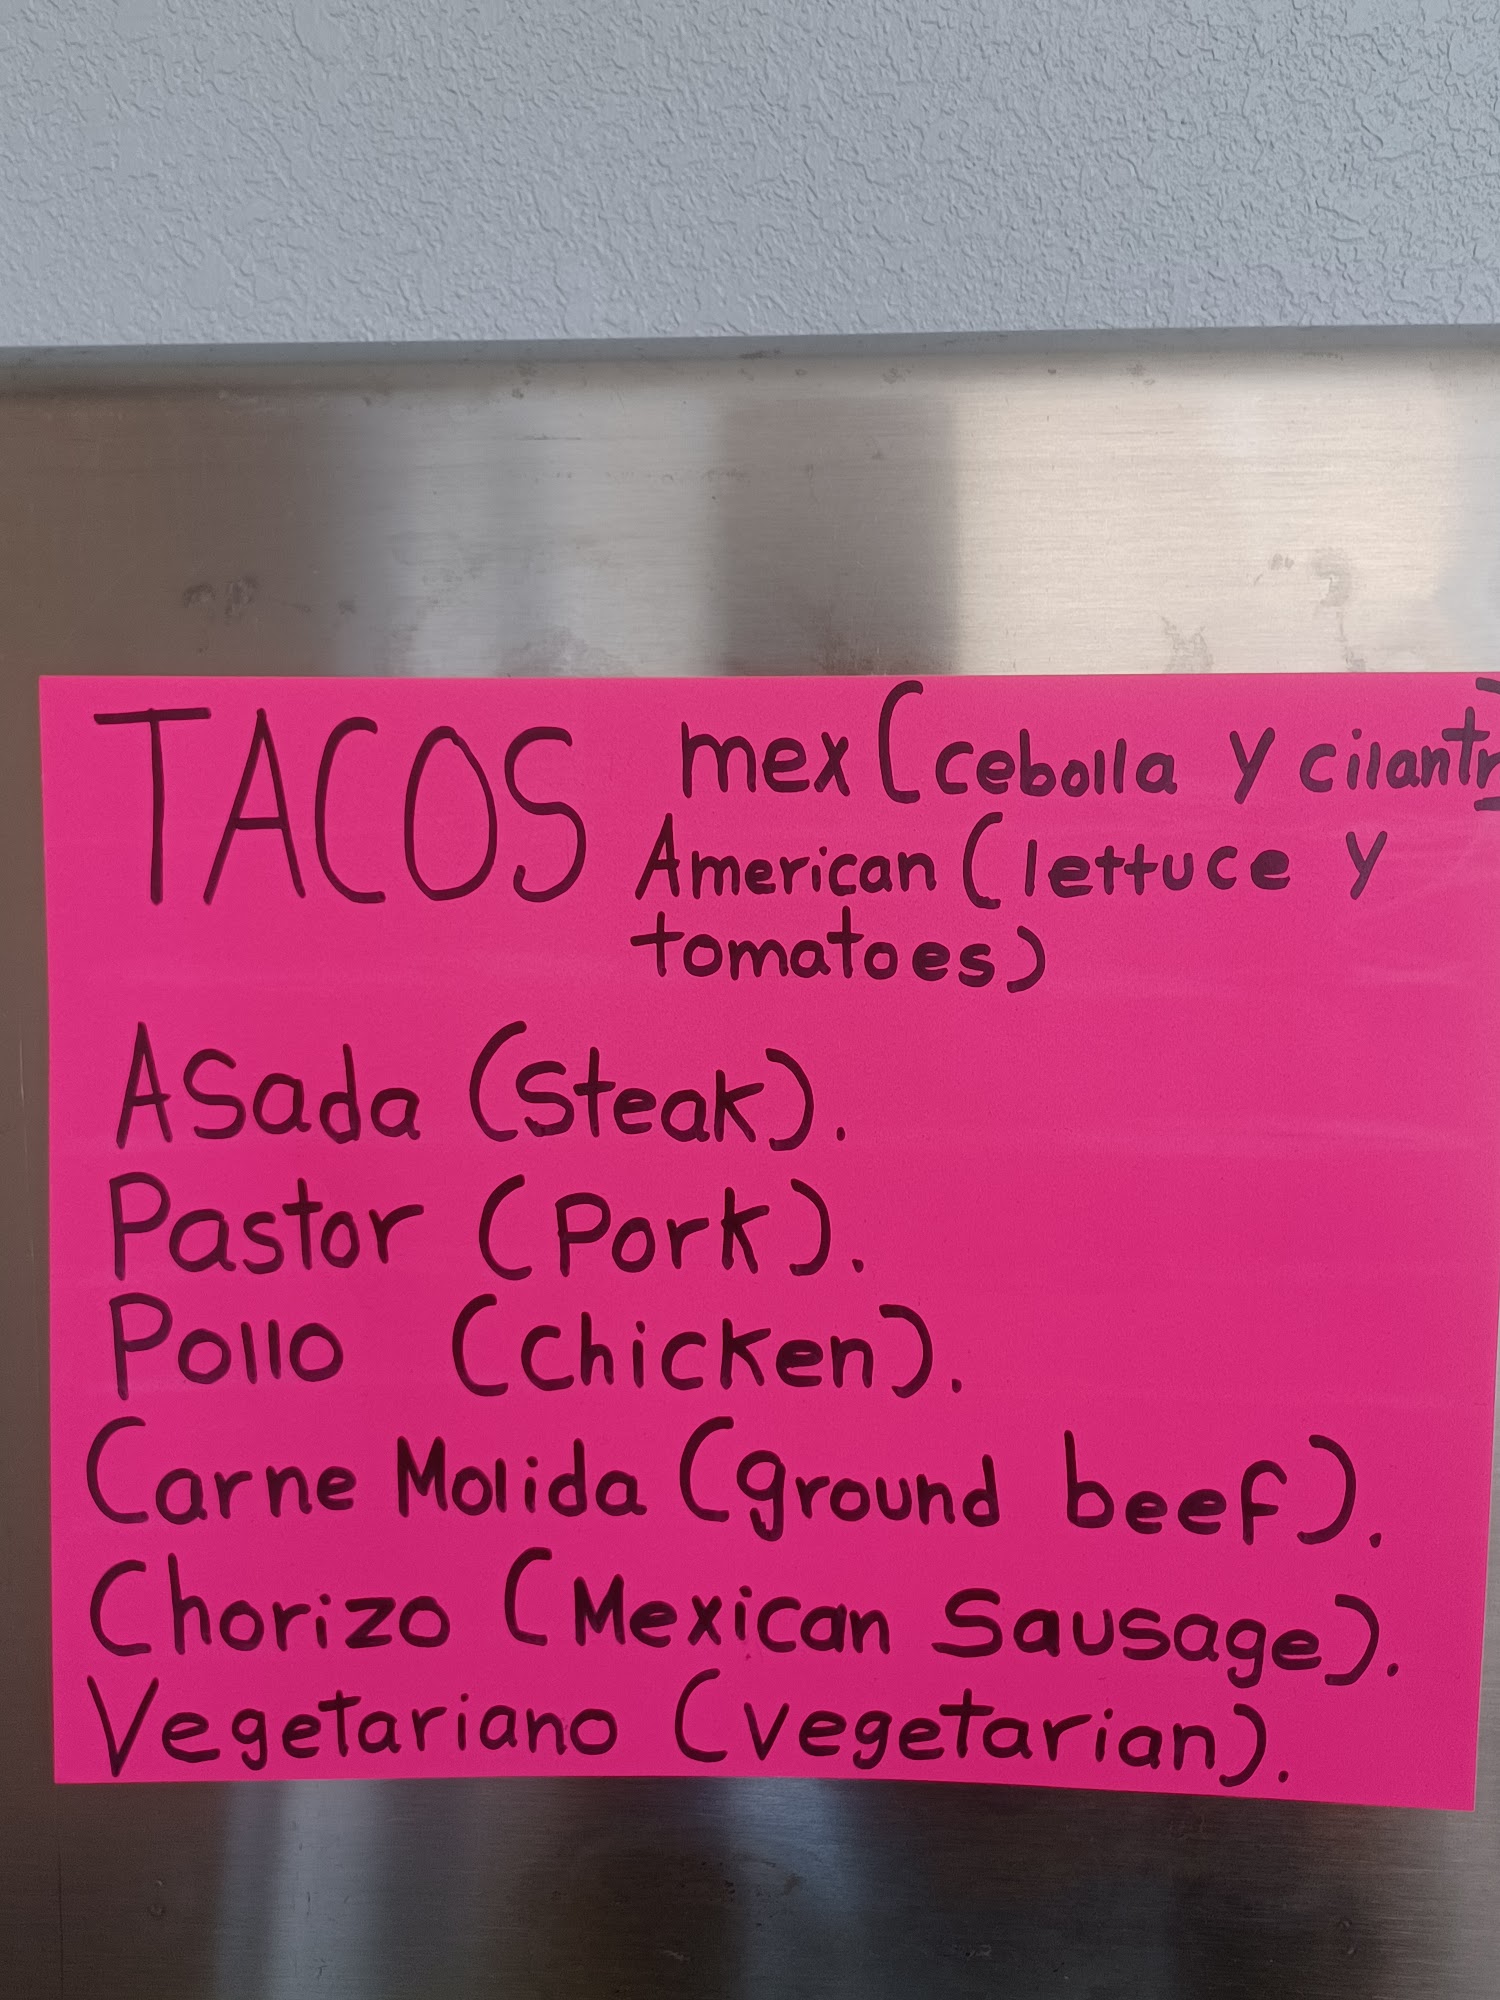 TACOS mex (cebolla y cilantr)
American (lettuce y
tomatoes)
Asada (Steak).
Pastor (Pork).
Pollo (chicken).
Carne Molida (ground beef).
Chorizo (Mexican Sausage).
Vegetariano (vegetarian).